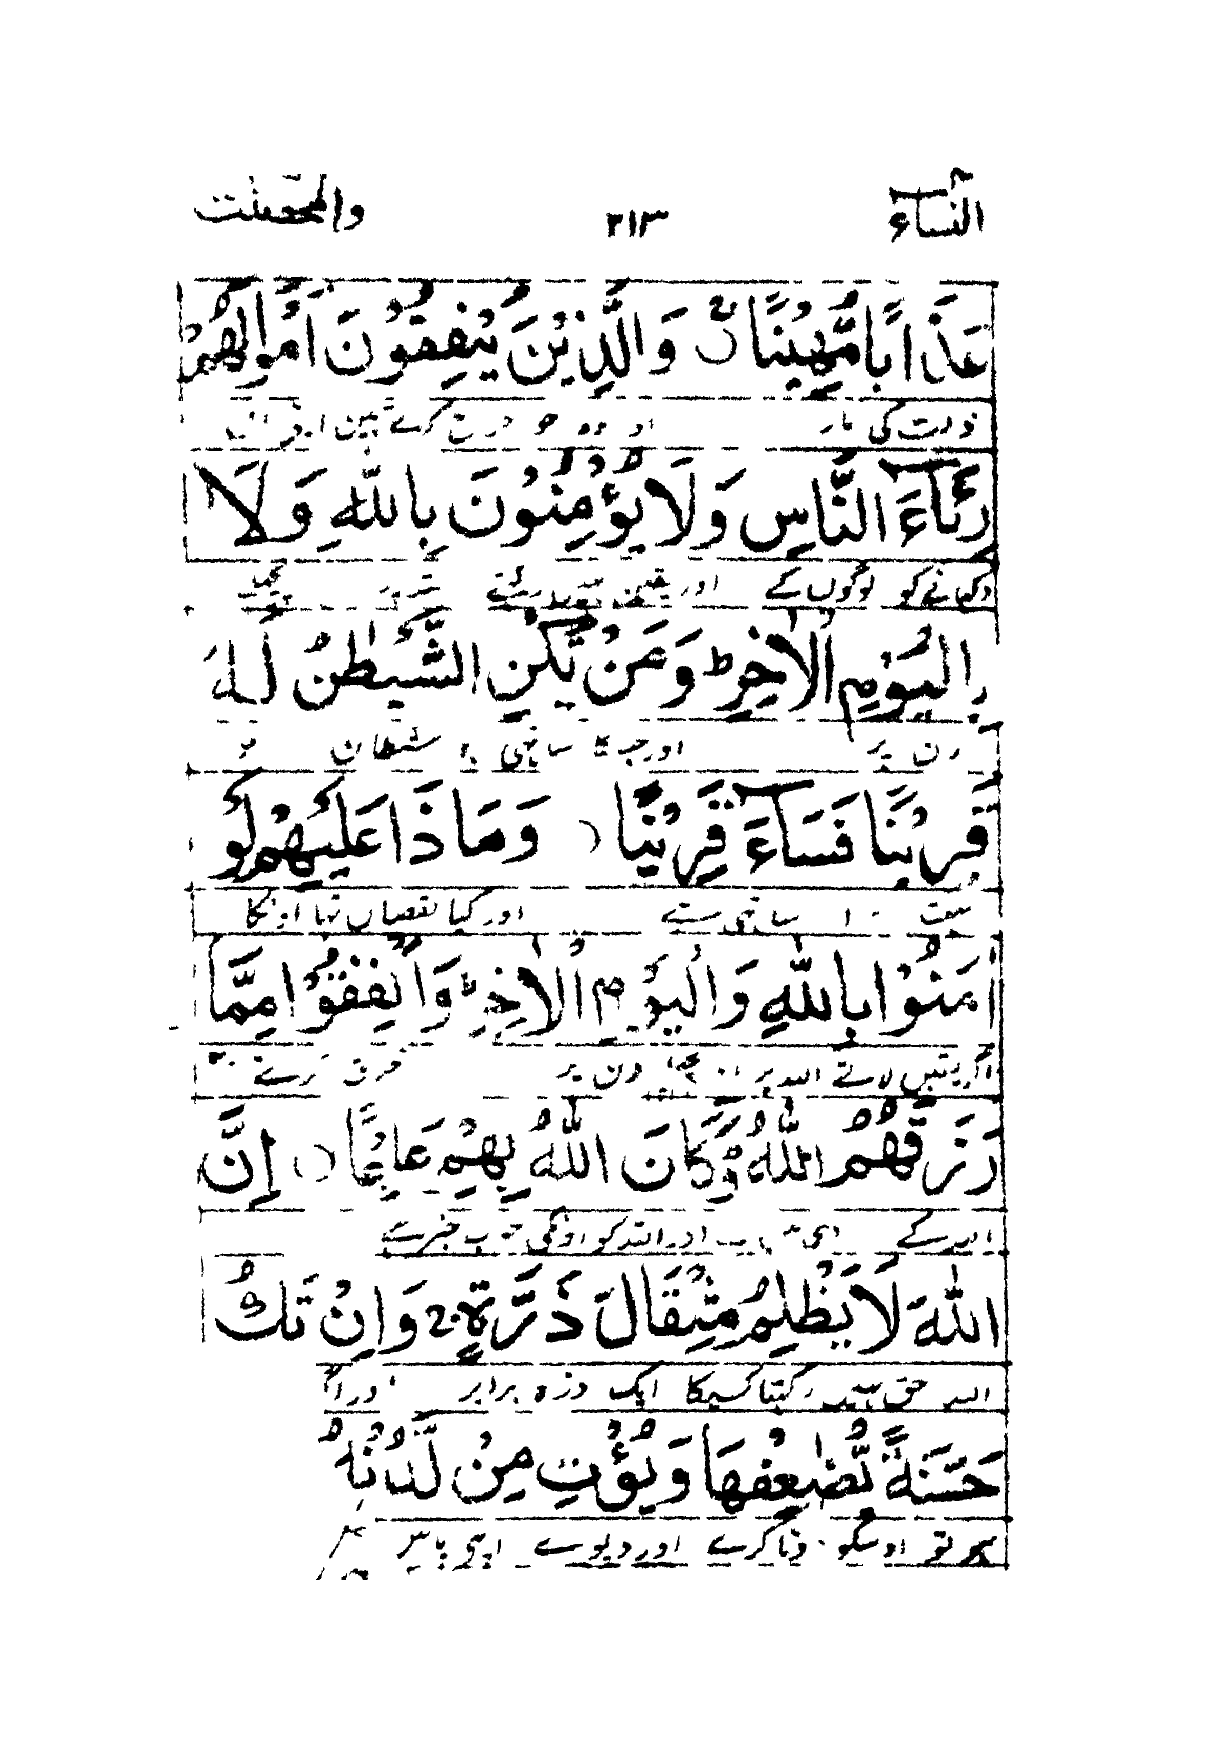 النسآء ٢١٣ والمحصنت
عَذَابًا مُّهِيْنًا وَالَّذِيْنَ يُنْفِقُوْنَ اَمْوَالَهُمْ
ذلت کی مار اور وہ جو خرچ کرتے ہیں
رِئَآءَ النَّاسِ وَلَا يُؤْمِنُوْنَ بِاللّٰهِ وَلَا
دکھانے کو لوگوں کے اور یقین نہیں رکھتے
بِالْيَوْمِ الْاٰخِرِ ط وَمَنْ يَّكُنِ الشَّيْطٰنُ لَهٗ
دن پر اور جسکا ساتھی ہو شیطان
قَرِيْنًا فَسَآءَ قَرِيْنًا وَمَاذَا عَلَيْهِمْ لَوْ
بہت ساتھی ہے اور کیا نقصان تھا اونکا
اٰمَنُوْا بِاللّٰهِ وَالْيَوْمِ الْاٰخِرِ ط وَاَنْفَقُوْا مِمَّا
اگر یقین لاتے اللہ پر دن پر خرچ کرتے
رَزَقَهُمُ اللّٰهُ وَكَانَ اللّٰهُ بِهِمْ عَلِيْمًا اِنَّ
اللہ کے اور اللہ کو اونکی خوب خبر ہے
اللّٰهَ لَا يَظْلِمُ مِثْقَالَ ذَرَّةٍ وَاِنْ تَكُ
اللہ حق نہیں رکھتا کسیکا ایک ذرہ برابر اور اگر
حَسَنَةً يُّضٰعِفْهَا وَيُؤْتِ مِنْ لَّدُنْهُ
تو اوسکو دونا کرے اور دیوے اپنی پاس